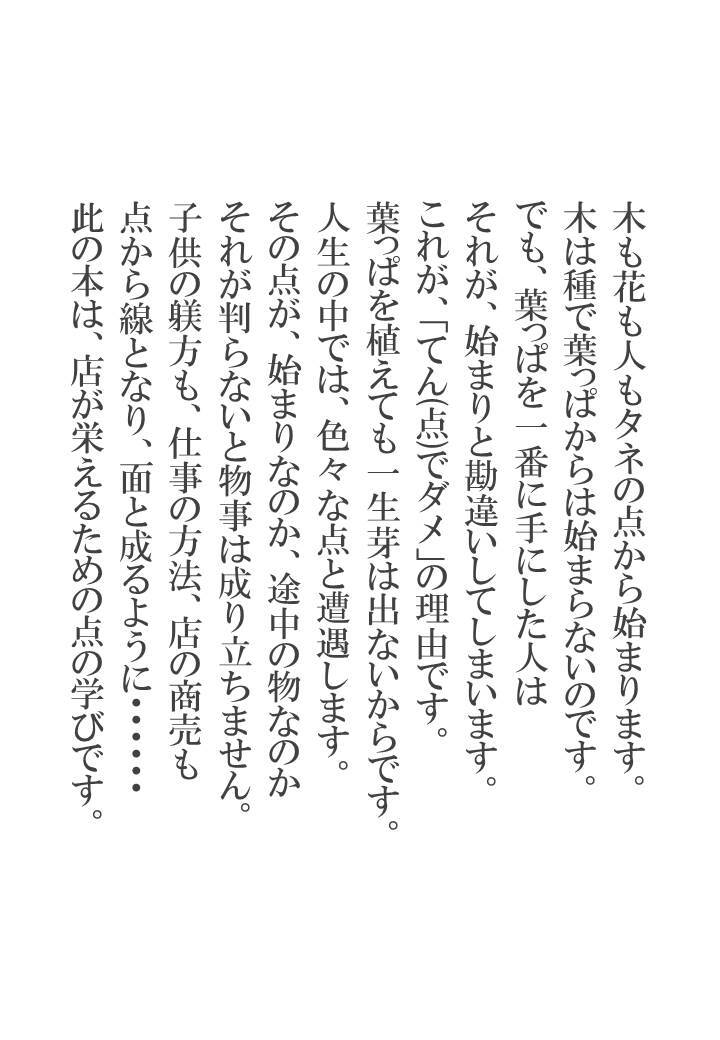 木も花も人もタネの点から始まります。
木は種で葉っぱからは始まらないのです。
でも、葉っぱを一番に手にした人は
それが、始まりと勘違いしてしまいます。
これが、「てん(点)でダメ」の理由です。
葉っぱを植えても一生芽は出ないからです。
人生の中では、色々な点と遭遇します。
その点が、始まりなのか、途中の物なのか
それが判らないと物事は成り立ちません。
子供の躾方も、仕事の方法、店の商売も
点から線となり、面と成るように・・・・・・
此の本は、店が栄えるための点の学びです。